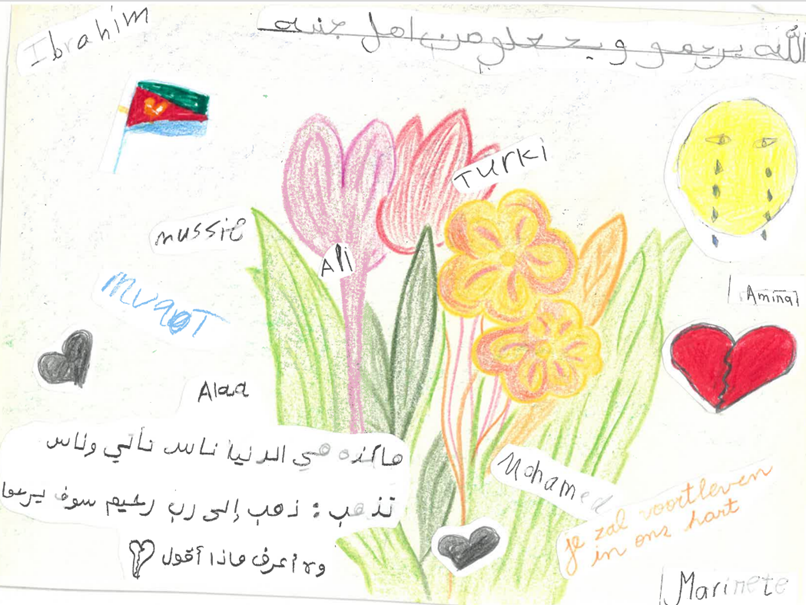 Ibrahim
الله يريمو ويجعلو من اهل جنيه
TURKI
mussie
Ali
Aminat
Alaa
هاكذه هي الدنيا ناس تأتي وناس
تذهب : ذهب إلى رب رحيم سوف يرعا
ولا أعرف ماذا أقول
Mohamed
je zal voortleven
in ons hart
Marinete